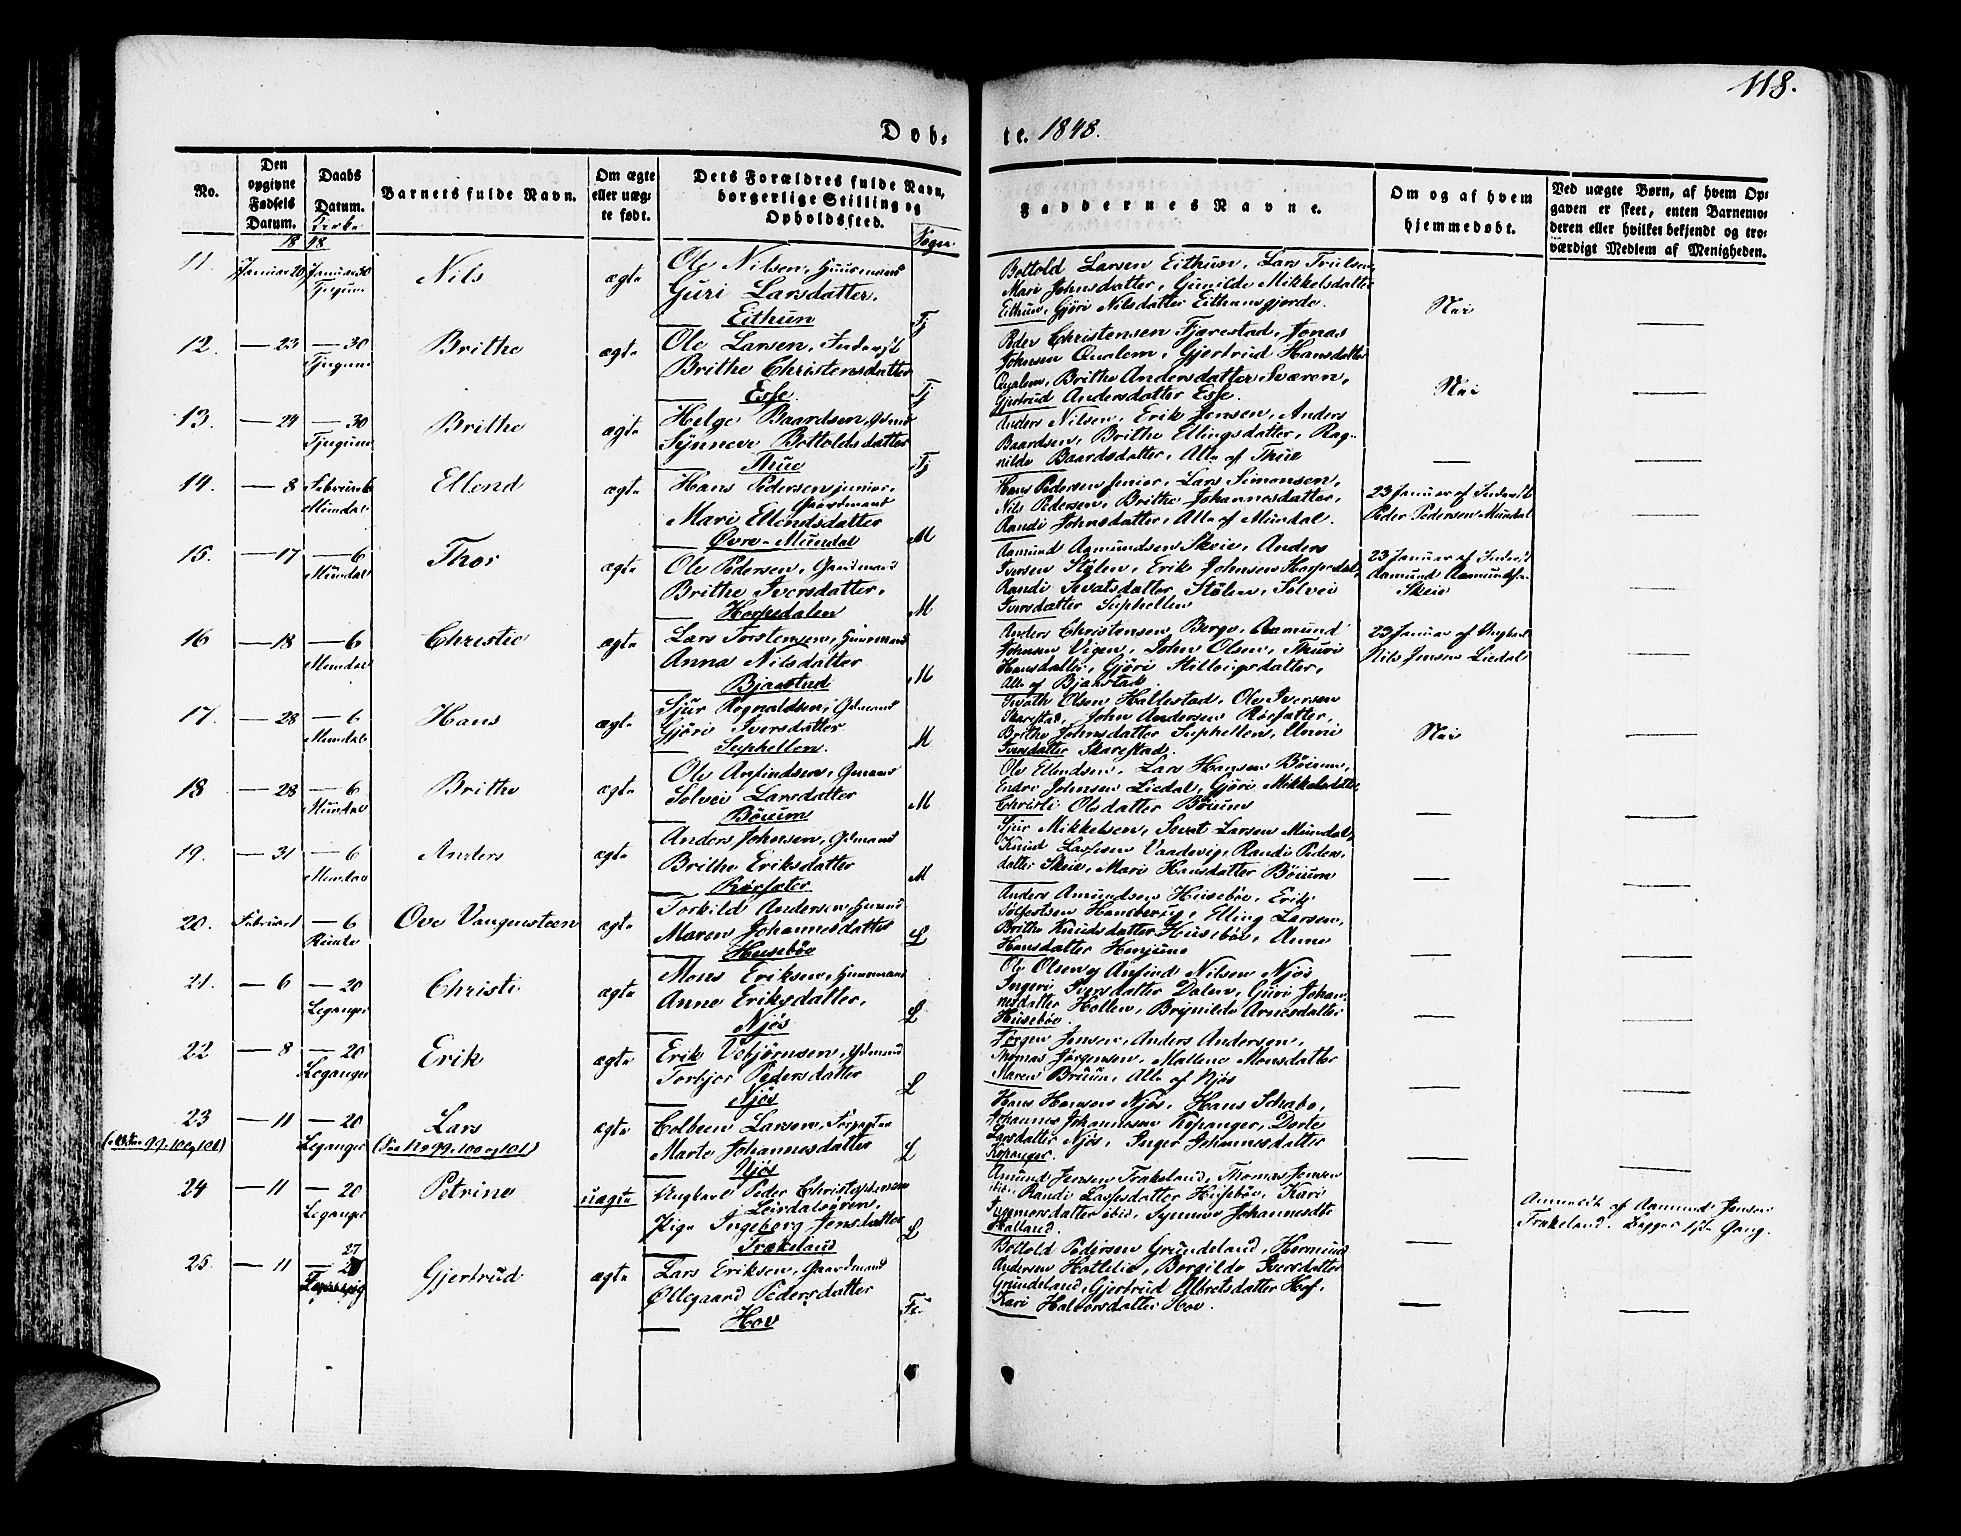 118.
Döb-
te. 1848.
No.
Den opgivne Fødsels Datum.
Daabs Datum.
Barnets fulde Navn.
Om ægte eller uægte født.
Dets Forældres fulde Navn, borgerlige Stilling og Opholdssted.
Sogn
Faddernes Navne.
Om og af hvem hjemmedøbt.
Ved uægte Børn, af hvem Opgaven er skeet, enten Barnemoderen eller hvilket bekjendt og troværdigt Medlem af Menigheden.
18 48
11. Januar 20 Januar 30 Nils ægte Ole Nilsen, Huusmand
Tjugum Guri Larsdatter.
Eithun Tj
Bottold Larsen Eithun, Lars Truelsen,
Mari Johnsdatter, Gunilde Mikkelsdatter
Eithun, Gjøri Nilsdatter Eithunsgjerde. Nei
12. — 23 — 30 Brithe ægte Ole Larsen, Inderst
Tjugum Brithe Christensdatter
Esse. Tj
Peder Christensen Fjærestad, Jonas
Johnsen Qualem, Gjertrud Hansdatter
Qualem, Brithe Andersdatter Sværen,
Gjertrud Andersdatter Esse. Nei
13. — 24 — 30 Brithe ægte Helge Baardsen, Gdmd
Tjugum Synneve Bottoldsdatter
Thue Tj
Anders Nilsen, Erik Jensen, Anders
Baardsen, Brithe Ellingsdatter, Rag-
nilde Baardsdatter, Alle af Thue
14. — 8 Februar 6 Ellend ægte Hans Pedersen junior,
Mundal Gaardmand
Mari Ellendsdatter
Øvre-Mundal M
Hans Pedersen senior, Lars Simonsen,
Nils Pedersen, Brithe Johannesdatter,
Randi Johnsdatter, Alle af Mundal.
23 Januar af Inderst
Peder Pedersen Mundal
15. — 17 — 6 Thor ægte Ole Pedersen, Gaardmand
Mundal Brithe Iversdatter,
Horpedalen M
Aamund Aamundsen Skeie, Anders
Iversen Stølen, Erik Johnsen Horpedal,
Randi Sevatsdatter, Stølen, Solvei
Iversdatter Suphellen
23 Januar af Inderst
Aamund Aamundsen
Skeie
16 — 18 — 6 Christie ægte Lars Torstensen, Huusmand
Mundal Anna Nilsdatter
Bjaastad M
Anders Christensen Berge, Aamund
Johnsen Vigen, John Olsen, Thuri
Hansdatter, Gjøri Stillougsdatter,
Alle af Bjaastad.
23 Januar af Ungkarl
Nils Jensen Liedal
17. — 28 — 6 Hans ægte Sjur Rognaldsen, Gdmand
Mundal Gjøri Iversdatter
Suphellen. M
Olsen Hallestad, Ole Iversen
Skarestad, John Andersen Rørsatter,
Brithe Johnsdatter Suphellen, Unni
Iversdatter Skarestad. Nei
18 — 28 — 6 Brithe ægte Ole Anfindsen, Gmand
Mundal Solvei Larsdatter
Böium M
Ole Ellendsen, Lars Hansen Böium,
Endre Johnsen Liedal, Gjøri Mikkelsdatter,
Christi Olsdatter Böium
19. — 31 — 6 Anders ægte Anders Johnsen, Gdmand
Mundal Brithe Eriksdatter
Rørsater M
Sjur Mikkelsen, Sevat Larsen Mundal,
Knud Lassesen Vaadevig, Randi Peders,
datter Skeie, Mari Hansdatter Böium
20. Februar 1 — 6 Ove Vangensteen ægte Torkild Andersen, Gmand
Maren Johannesdatter
Husebøe L
Anders Amundsen Husebøe, Erik
Tolfestsen Haneberg, Elling Larsen,
Brithe Knudsdatter Husebøe, Anne
Hansdatter Henjum
21. — 6 — 20 Christi ægte Mons Eriksen, Huusmand
Leganger Anne Eriksdatter,
Njøs L
Ole Olsen og Anfind Nilsen Njøs
Ingeri Iversdatter Dalen, Guri Johan-
nesdatter Hollen, Brynilde Arnesdatter
Husebøe.
22 — 8 — 20 Erik ægte Erik Vebjørnsen, Gdmand
Leganger Torbjor Pedersdatter
Njøs L
Jørgen Jensen, Anders Andersen,
Thomas Jørgensen, Mallene Monsdatter
Maren Bruun, Alle af Njøs
23 — 11 — 20 Lars ægte Colbeen Larsen, Forpagter
(see No 99, 100 og 101) Leganger (see No 99, 100 og 101) Marte Johannesdatter
Njøs L
Hans Hansen Njøs, Hans Schabo,
Johannes Johannesen Kopanger, Dorte
Larsdatter Njøs, Inger Johannesdatter
Kopanger.
24 — 11 — 20 Petrine uægte Ungkarl Peder Christophersen
Leganger Leirdalsøren,
Pige Ingeborg Jensdatter
Frækeland L
Amund Jensen Frækeland, Thomas Jensen
ibid., Randi Lassesdatter Husebøe, Kari
Ingemorsdatter ibid, Synneve Johannesdtr
Hælland.
Anmeldt af Aamund Jensen
Frækeland. Begges 1ste Gang.
25. — 11 — 27 Gjertrud ægte Lars Eriksen, Gaardmand
Øllegaard Pedersdatter
Hov Fe.
Bottold Pedersen Grundeland, Hermund
Andersen Hatlelie, Borgilde Iversdatter
Grundeland, Gjertrud Albretsdatter Hof,
Kari Halvorsdatter Hov.